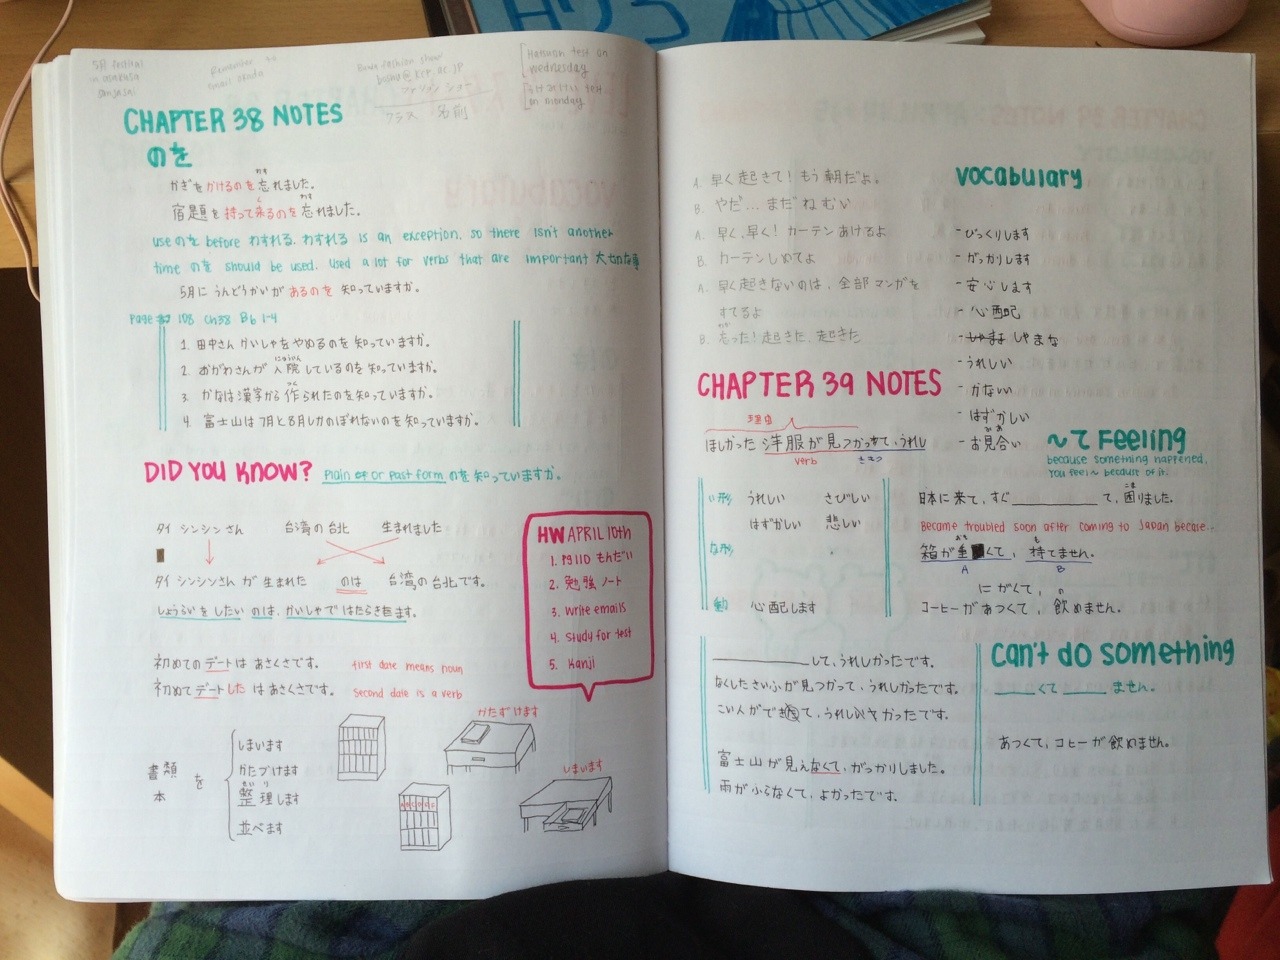 5月 festival
in asakusa
sanjasai
Remember to
email okada
fashion show
@kcp.ac.jp
ファッションショー
クラス 名前
Hatsuon test on
wednesday
test
on monday
CHAPTER 38 NOTES
のを
かぎをかけるのを忘れました。
わす
宿題を持って来るのを忘れました。
く わす
use のを before わすれる. わすれる is an exception, so there isn't another
time のを should be used. Used a lot for verbs that are important 大切な事
5月にうんどうかいがあるのを知っていますか。
Page 108 Ch38 B6 1-4
1. 田中さんがいしゃをやめるのを知っていますか。
2. おがわさんが入院しているのを知っていますか。
にゅういん
3. かなは漢字から作られたのを知っていますか。
つく
4. 富士山は7月と8月しかのぼれないのを知っていますか。
DID YOU KNOW? Plain or past form のを知っていますか。
タイ シンシンさん 台湾の台北 生まれました
タイ シンシンさんが生まれた のは 台湾の台北です。
しょうらいをしたいのは、かいしゃではたらきます。
初めてのデートは あさくさです。 first date means noun
初めてデートした はあさくさです。 second date is a verb
書類
本
を
しまいます
かたづけます
整理します
せいり
並べます
かたずけます
しまいます
ABCDEF
HW APRIL 10th
1. pg110 もんだい
2. 勉強ノート
3. write emails
4. Study for test
5. Kanji
A. 早く起きて!もう朝だよ。
B. やだ...まだねむい
A. 早く、早く!カーテンあけるよ
B. カーテンしめてよ
A. 早く起きないのは、全部マンガを
すてるよ
B. 忘った!起きた、起きた
わか
vocabulary
- びっくりします
- がっかりします
- 安心します
- 心配
- じゃま
- うれしい
- かない
- はずかしい
- お見合い
みあ
CHAPTER 39 NOTES
理由
ほしかった洋服が見つかって、うれし
verb きそう
~て Feeling
because something happened,
you feel~ because of it.
い形 うれしい さびしい
はずかしい 悲しい
な形
動 心配します
日本に来て、すぐ て、困りました。
こま
Became troubled soon after coming to Japan because..
箱が重くて、持てません。
おも も
A B
にがくて、
コーヒーがあつくて、飲めません。
の
して、うれしかったです。
なくしたさいふが見つかって、うれしかったです。
こい人ができて、うれしかったです。
富士山が見えなくて、がっかりしました。
雨がふらなくて、よかったです。
Can't do something
くて ません。
あつくて、コヒーが飲めません。